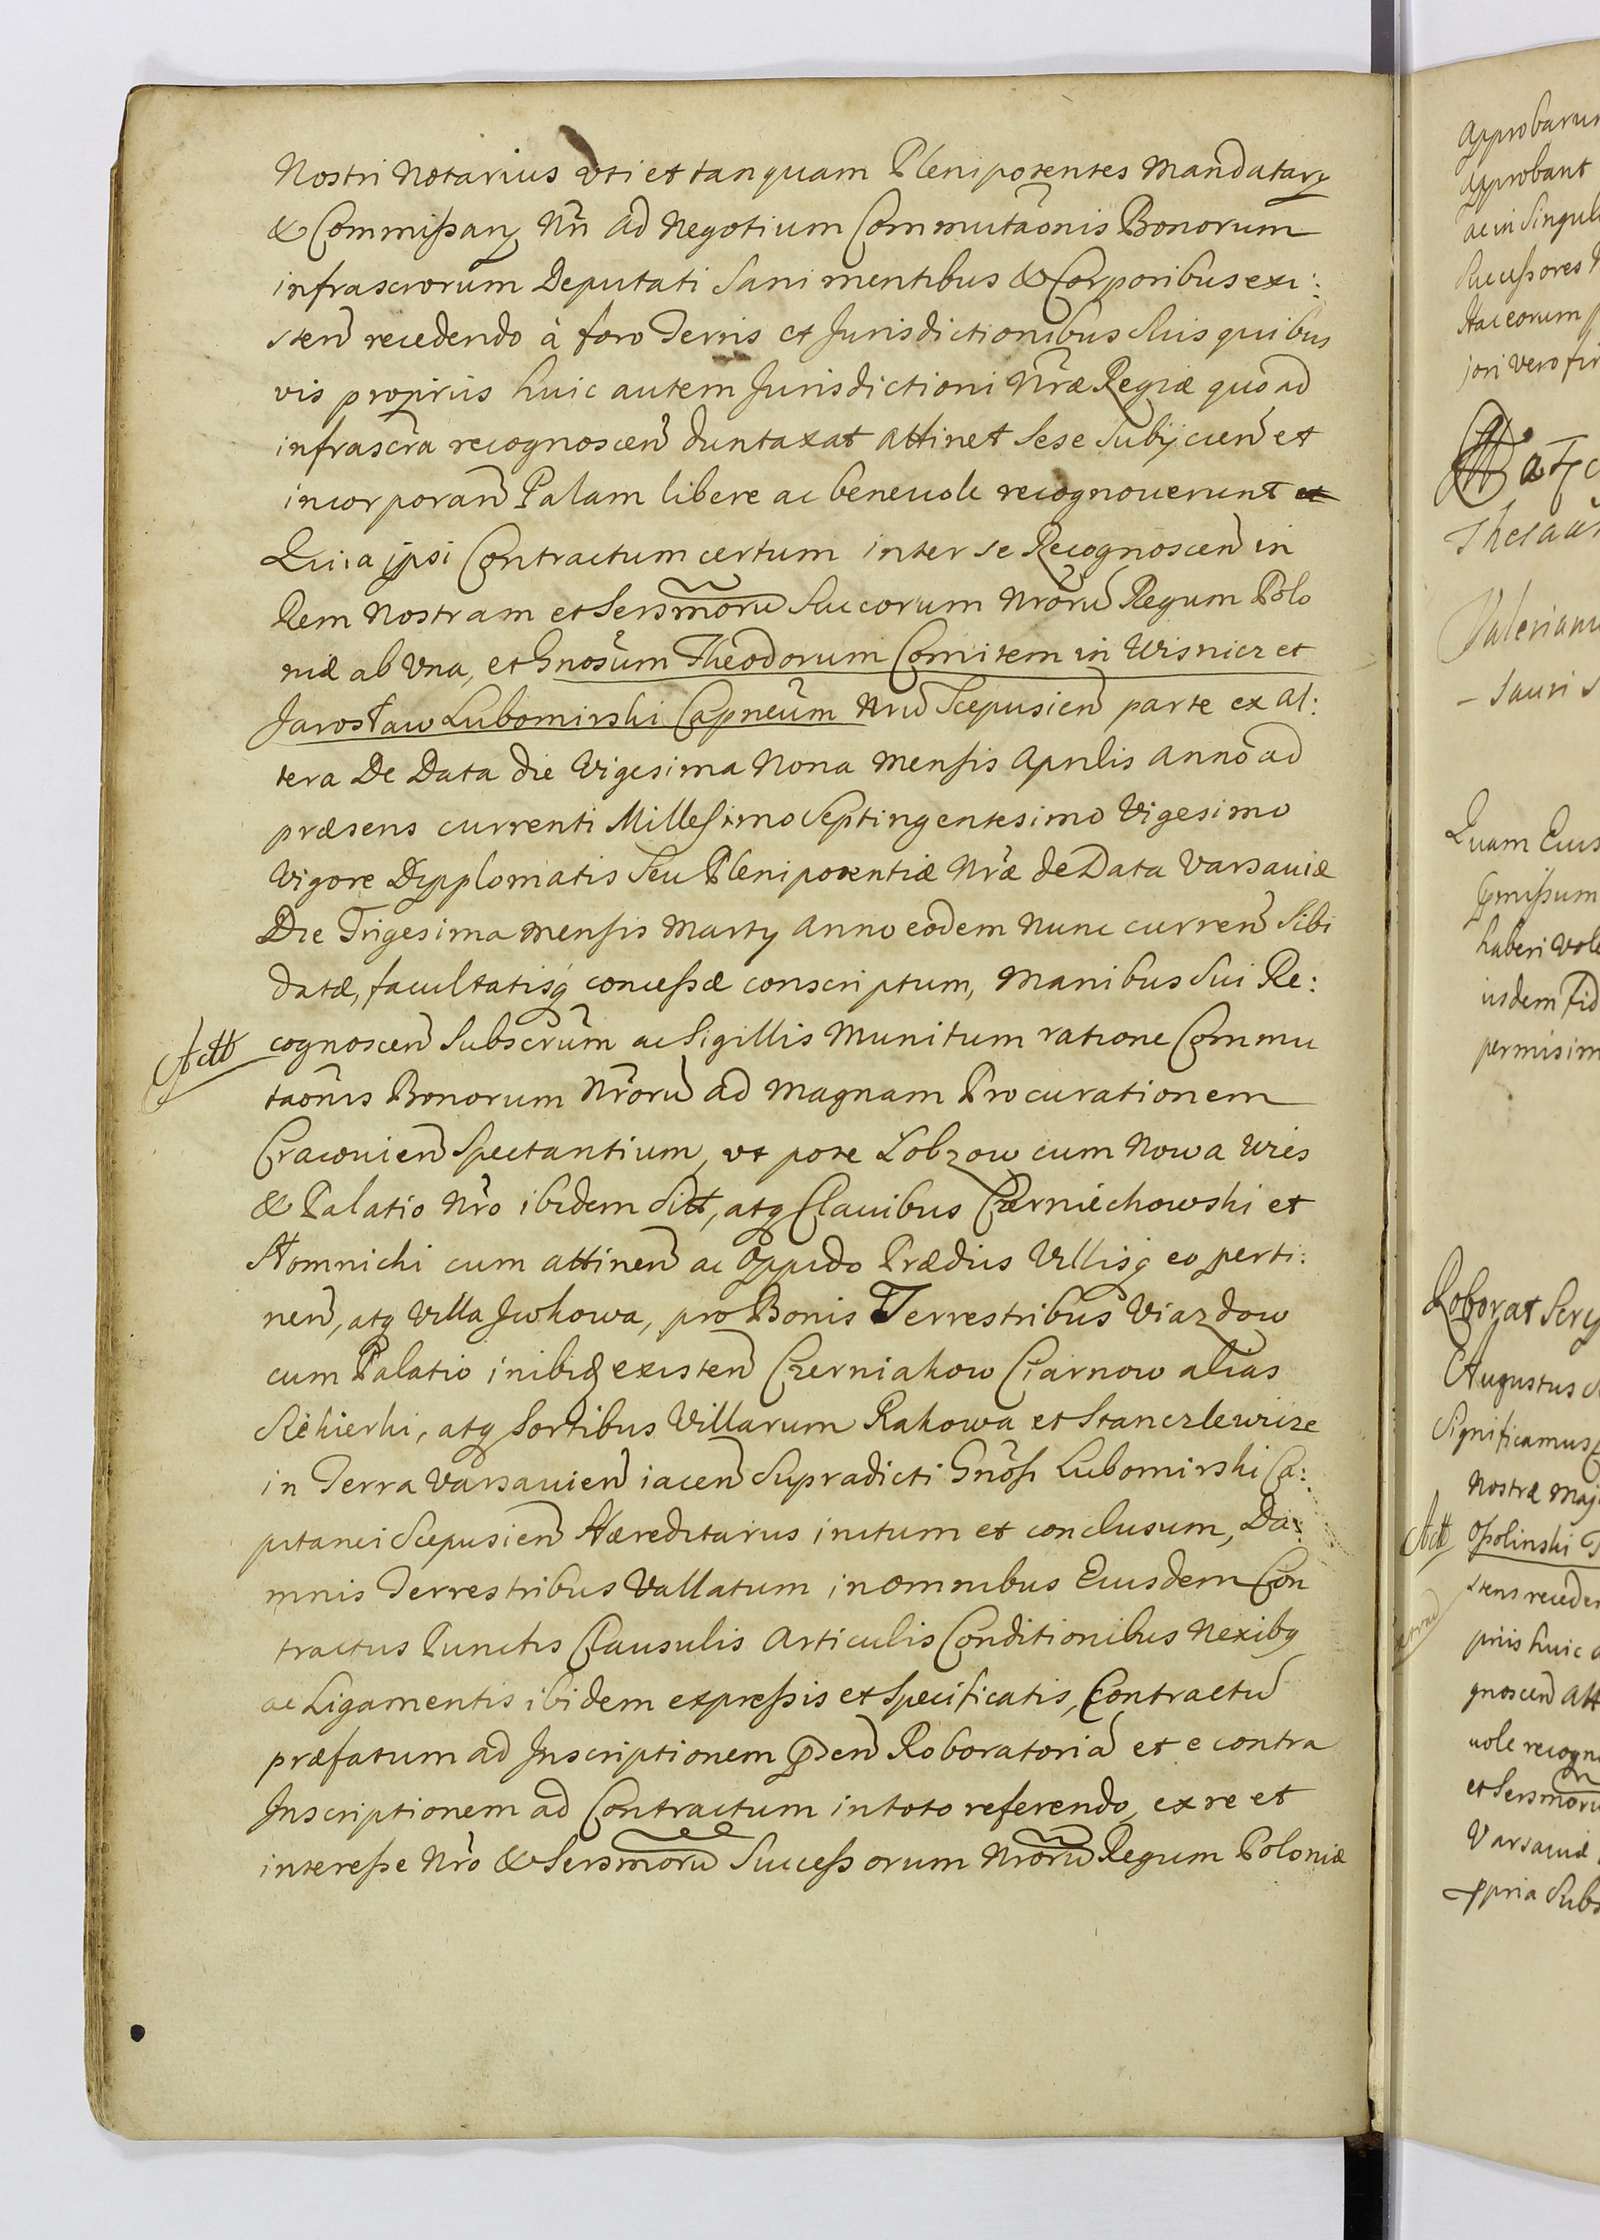 Nostri Notarius uti et tanquam Plenipotentes Mandatarÿ
& Commißarÿ Nrī ad Negotium Commutãonis Bonorum
infrascrorum Deputati Sani mentibus & Corporibus exi:
sten̄ recedendo à foro Terris et Jurisdictionibus Suis quibus
vis propriis huic autem Jurisdictioni Nr̃æ Regiæ quo ad
infrascr̃a recognoscen̄ duntaxat attinet Sese Subijcien̄ et
incorporan̄ Palam libere ac beneuole recognouerunt
Quia ipsi Contractum certum inter se Recognoscen̄ in
Rem Nostram et Sersmorū Succorum Nrorū Regum Polo
niæ ab Una, et Gnosum Theodorum Comitem in Wisnicz et
Jarosław Lubomirski Capneum Nrū Scepusien̄ parte ex al:
tera De Data die Vigesima Nona Mensis Aprilis Anno ad
præsens currenti Millesimo Septingentesimo Vigesimo
Vigore Dypplomatis Seu Plenipotentiæ Nr̃æ de Data Varsauiæ
Die Trigesima Mensis Martÿ Anno eodem Nunc curren̄ Sibi
datæ, facultatisq conceßæ conscriptum, Manibus Sui Re:
Actt
cognoscen̄ Subscrum ac Sigillis Munitum ratione Commu
taonis Bonorum Nrorū ad Magnam Procurationem
Cracouien̄ Spectantium, ut pote Łobzow cum Nowa Wies
& Palatio Nrõ ibidem Sitt, atq Clauibus Czerniechowski et
Słomnicki cum attinen̄ ac Oppido Prædiis Villisq eo perti:
nen̄, atq Villa Jwkowa, pro Bonis Terrestribus Viazdow
cum Palatio inibiq existen̄ Czerniakow Ciarnow alias
Siekierki, atq Sortibus Villarum Rakowa et Stanczlewize
in Terra Varsauien̄ iacen̄ Supradicti Gnosi Lubomirski Ca:
pitanei Scepusien̄ Hæreditariis initum et conclusum, Da:
mnis Terrestribus Vallatum in omnibus Eiusdem Con
tractus Punctis Clausulis Articulis Conditionibus Nexibq
ac Ligamentis ibidem expreßis et Specificatis, Contractū
præfatum ad Inscriptionem p̃sen̄ Roboratoriā et e contra
Inscriptionem ad Contractum in toto referendo, ex re et
intereße Nrõ & Sersmorū Succeßorum Nrorū Regum Poloniæ
approbarun
approbant
ac in Singul
Succeßores
Hac eorum
jori vero fir
Thesaur
Valerianu
Quam Eius
haberi vole
iusdem Fid
permisim
Roborat Scry
Augustus
Significamus
Nostræ Maj
Actt
Oßolinski
stens recede
priis huic
gnoscen̄ att
uole recogn
et Sersmorū
Varsauiæ
ppria Subs